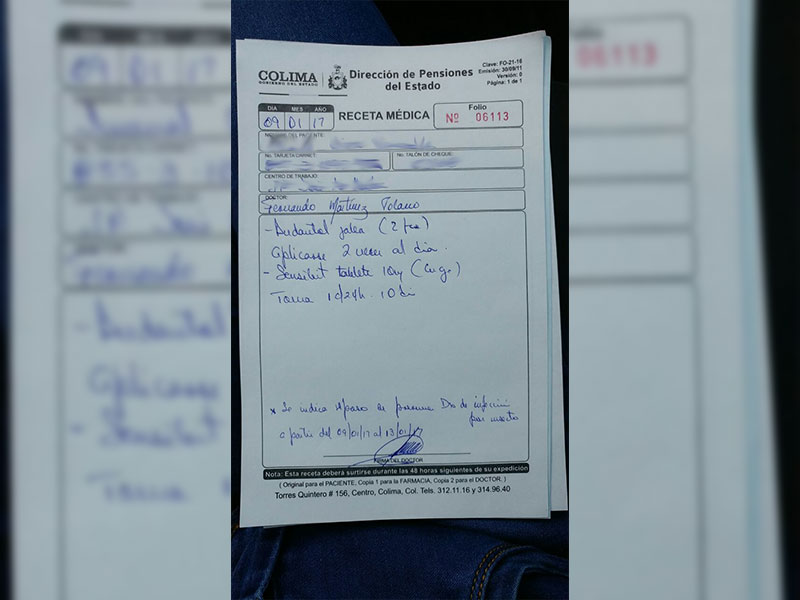 COLIMA
GOBIERNO DEL ESTADO
Dirección de Pensiones
del Estado
Clave: FO-21-16
Emisión: 30/09/11
Versión: 0
Página: 1 de 1
DIA MES AÑO
09 01 17
RECETA MÉDICA
Folio
Nº 06113
NOMBRE DEL PACIENTE:
No. TARJETA CARNET:
No. TALÓN DE CHEQUE:
CENTRO DE TRABAJO:
DOCTOR:
Fernando Martínez Tolano
- Andantol jalea (2 )
Aplicarse 2 veces al dia.
- Sensibit tableta 10mg ( )
Toma 1c/24h. 10 di
* Se indica reposo en persona Dx de infección
por insecto
a partir del 09/01/17 al 13/01/17
FIRMA DEL DOCTOR
Nota: Esta receta deberá surtirse durante las 48 horas siguientes de su expedición
( Original para el PACIENTE, Copia 1 para la FARMACIA, Copia 2 para el DOCTOR. )
Torres Quintero # 156, Centro, Colima, Col. Tels. 312.11.16 y 314.96.40